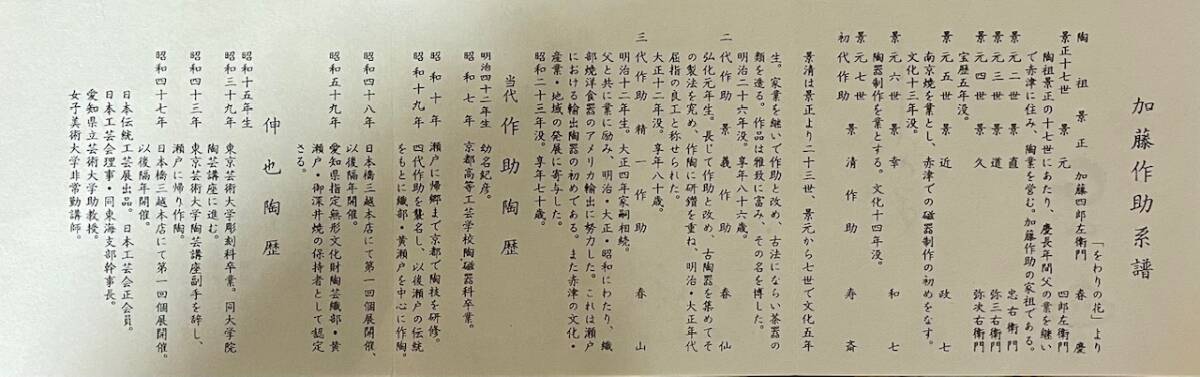 加藤作助系譜
「をわりの花」より
陶祖景正 加藤四郎左衛門 春慶
景正十七世 景元 四郎左衛門
陶祖景正の十七世にあたり、慶長年間父の業を継いで赤津に住み、陶業を営む。加藤作助の家祖である。
景元二世 景直 忠右衛門
景元三世 景道 弥三右衛門
景元四世 景久 弥次右衛門
宝歴五年没。
景元五世 景近 政七
南京焼を業とし、赤津での磁器制作の初めをなす。
文化十三年没。
景元六世 景幸 和七
陶器制作を業とする。文化十四年没。
景元七世
初代作助 景清作助 寿斎
景清は景正より二十三世、景元から七世で文化五年
生。家業を継いで作助と改め、古法にならい茶器の
類を造る。作品は雅致に富み、その名を博した。
明治二十六年没。享年八十六歳。
二代作助 景義作助 春仙
弘化元年生。長じて作助と改め、古陶器を集めてそ
の製法を究め、作陶に研鑽を重ね、明治・大正年代
屈指の良工と称せられた。
大正十二年没。享年八十歳。
三代作助 精一作助 春山
明治十二年生。大正四年家嗣相続。
父と共に業に励み、明治・大正・昭和にわたり、織
部焼洋食器のアメリカ輸出に努力した。これは瀬戸
における輸出陶器の初めである。また赤津の文化・
産業・地域の発展に寄与した。
昭和二十三年没。享年七十歳。
当代 作助陶歴
明治四十二年生 幼名紀彦。
昭和七年 京都高等工芸学校陶磁器科卒業。
昭和十年 瀬戸に帰郷まで京都で陶技を研修。
昭和十九年 四代作助を襲名し、以後瀬戸の伝統
をもとに織部・黄瀬戸を中心に作陶。
昭和四十八年 日本橋三越本店にて第一回個展開催、
以後隔年開催。
昭和五十九年 愛知県指定無形文化財陶芸織部・黄
瀬戸・御深井焼の保持者として認定
さる。
仲也陶歴
昭和十五年生
昭和三十九年 東京芸術大学彫刻科卒業。同大学院
陶芸講座に進む。
昭和四十三年 東京芸術大学陶芸講座副手を辞し、
瀬戸に帰り作陶。
昭和四十七年 日本橋三越本店にて第一回個展開催。
以後隔年開催。
日本伝統工芸展出品。日本工芸会正会員。
日本工芸会理事・同東海支部幹事長。
愛知県立芸術大学助教授。
女子美術大学非常勤講師。